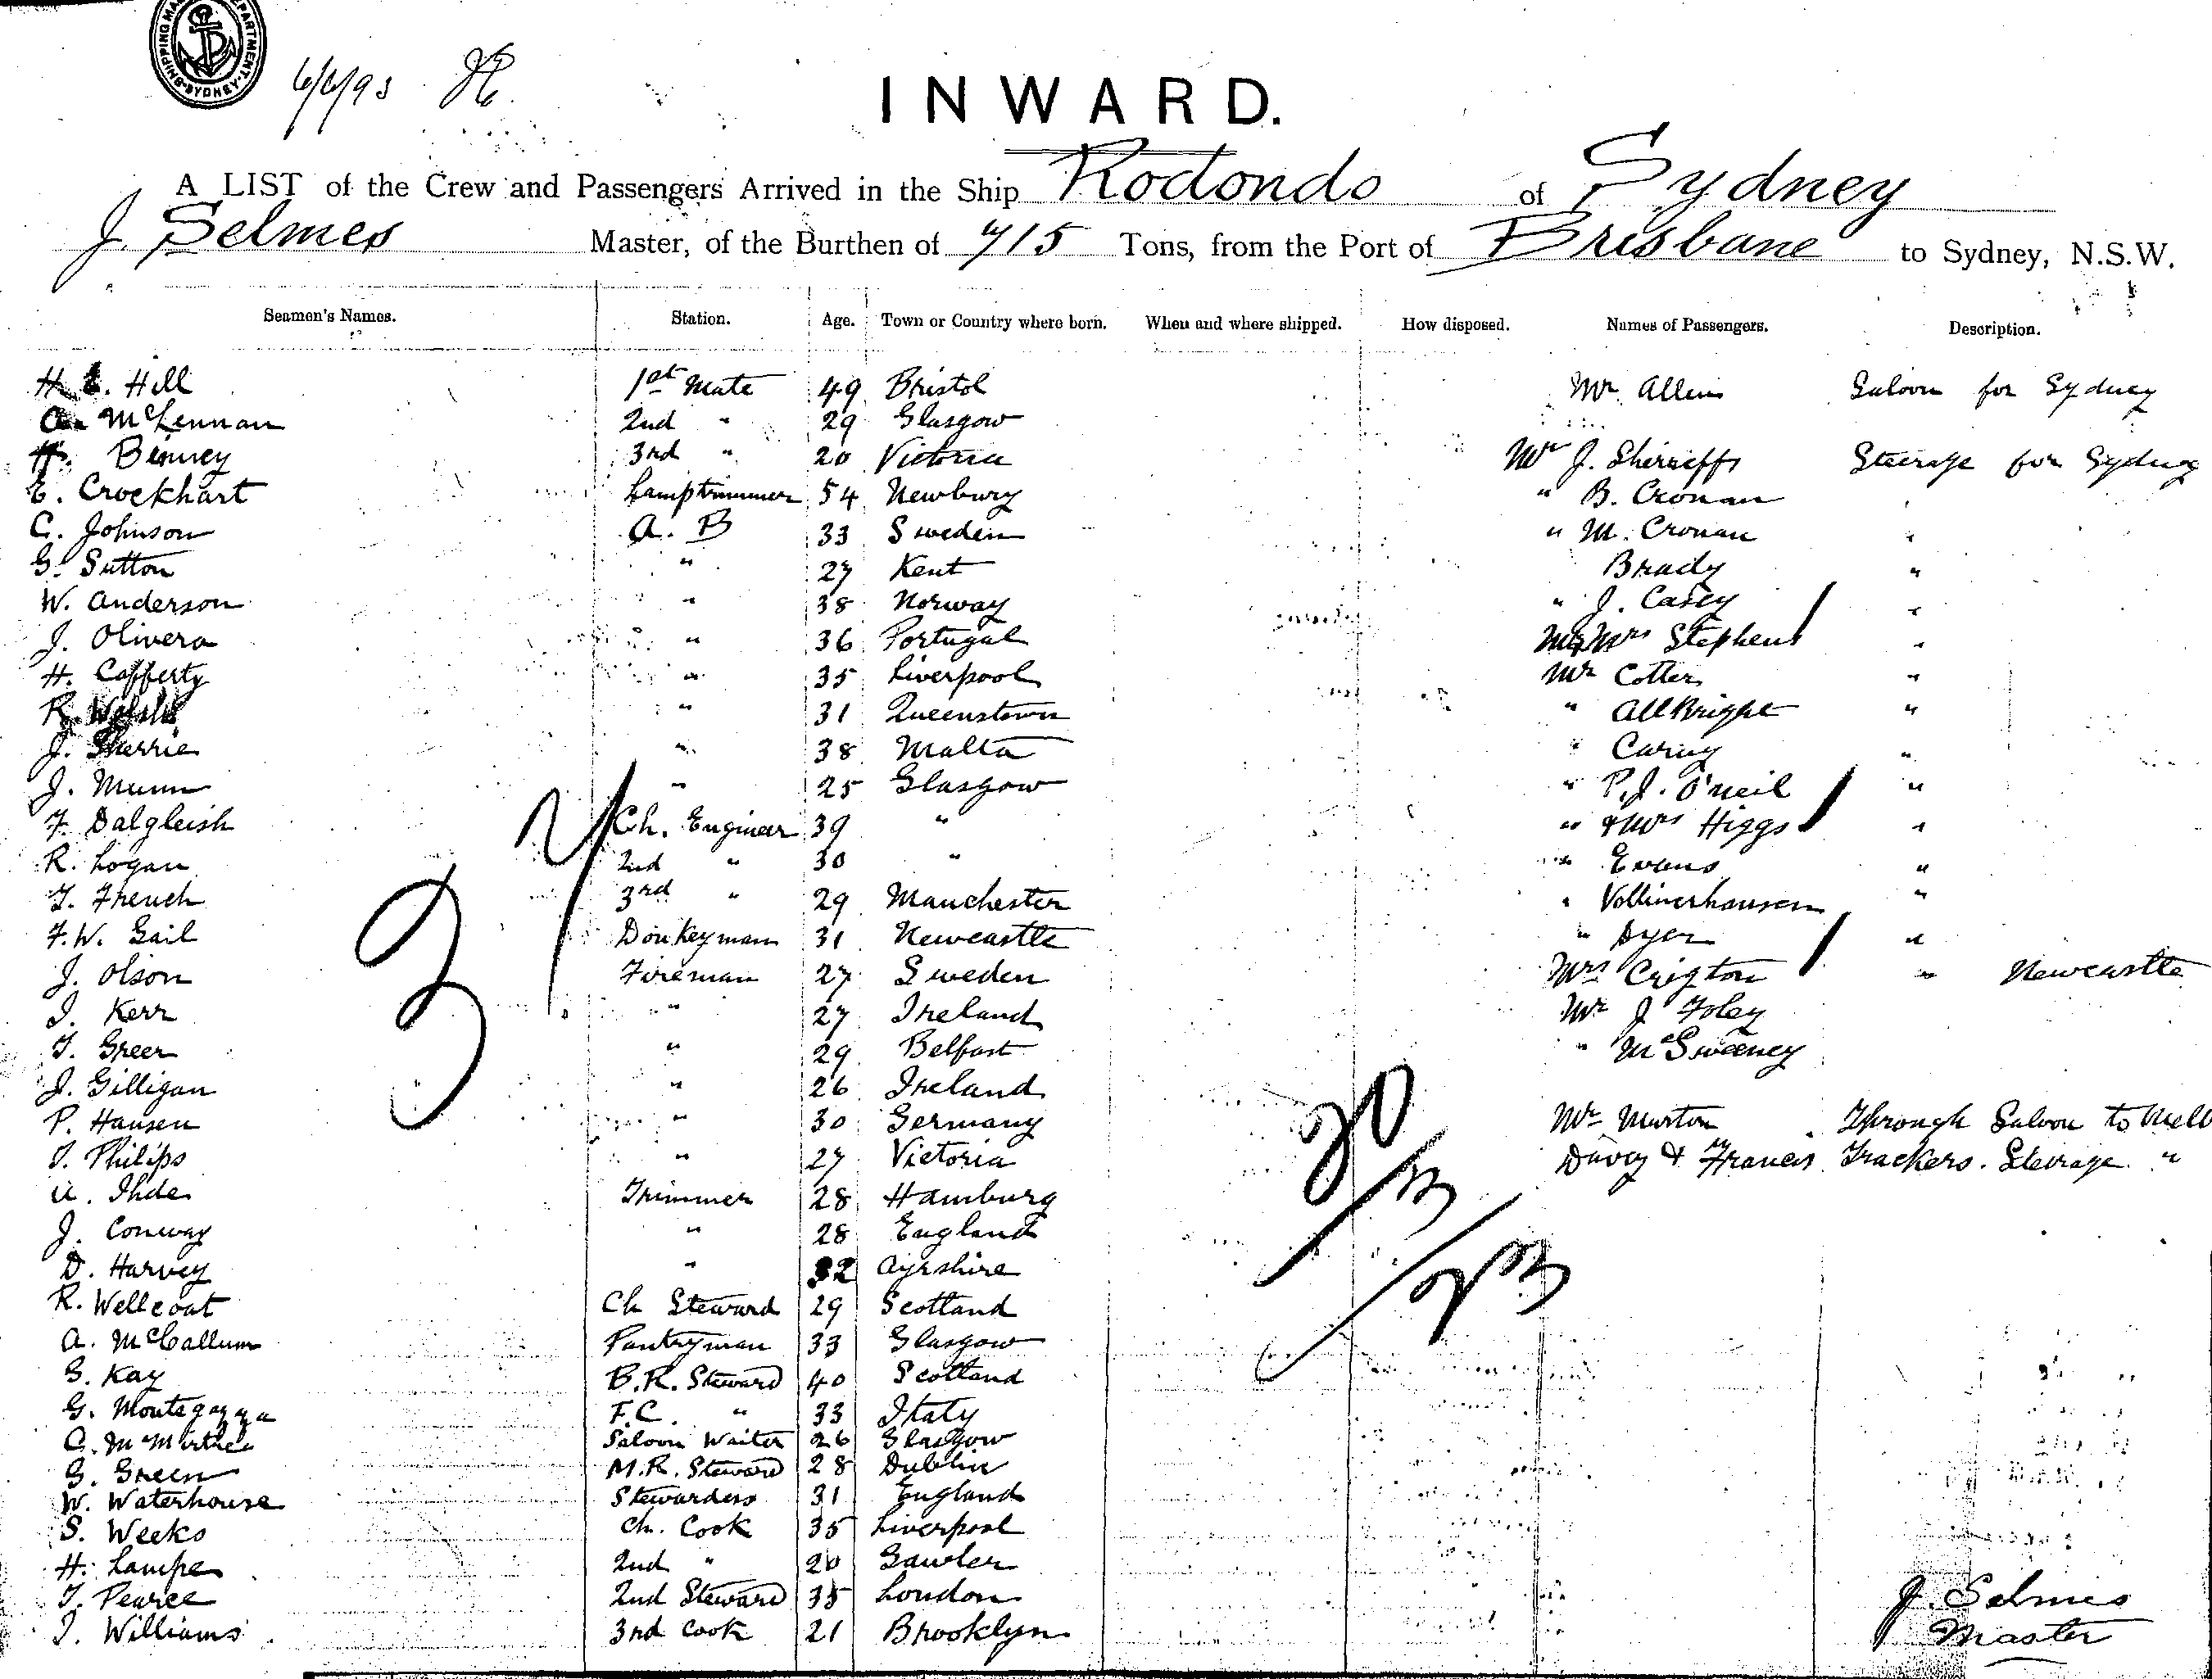 SHIPPING MA DEPARTMENT. SYDNEY
6/4/93
INWARD.
A LIST of the Crew and Passengers Arrived in the Ship Rodondo of Sydney
J. Selmes Master, of the Burthen of 715 Tons, from the Port of Brisbane to Sydney, N.S.W.
Seamen's Names. Station. Age. Town or Country where born. When and where shipped. How disposed. Names of Passengers. Description.
H. Hill 1st Mate 49 Bristol Mr. Allen Saloon for Sydney
McLennan 2nd " 29 Glasgow
H. Binney 3rd " 20 Victoria Mr J. Sherriffs Steerage for Sydney
E. Crockhart Lamptrimmer 54 Newbury " B. Cronan
C. Johnson A. B 33 Sweden " M. Cronan "
G. Sutton " 27 Kent Brady "
W. Anderson " 38 Norway " J. Casey "
J. Olivera " 36 Portugal Mr & Mrs Stephens "
H. Cafferty " 35 Liverpool Mr Cotter "
R. Walsh " 31 Queenstown " Allbright "
J. Sherrie " 38 Malta " "
J. Munn " 25 Glasgow " P.J. O'Neil "
F. Dalgleish Ch. Engineer 39 " " & Mrs Higgs "
R. Logan 2nd " 30 " " Evans "
T. French 3rd " 29 Manchester " Vollmerhausen "
F.W. Gail Donkeyman 31 Newcastle " Dyer "
J. Olson Fireman 27 Sweden Mrs Crigton " Newcastle
J. Kerr " 27 Ireland Mr J Foley
T. Greer " 29 Belfast " McSweeney
J. Gilligan " 26 Ireland
P. Hansen " 30 Germany Mr Morton Through Saloon to Melb
J. Philips " 27 Victoria Davey & Francis Trackers. Steerage "
Ihde Trimmer 28 Hamburg
J. Conway " 28 England
D. Harvey " 32 Ayrshire
R. Wellcoat Ch Steward 29 Scotland
A. McCallum Pantryman 33 Glasgow
G. Kay B.R. Steward 40 Scotland
G. Montegazza F.C. " 33 Italy
C. Saloon Waiter 26 Glasgow
G. Green M.R. Steward 28 Dublin
W. Waterhouse Stewardess 31 England
S. Weeks Ch. Cook 35 Liverpool
H. Lampe 2nd " 20 Gawler
T. Pearce 2nd Steward 35 London J. Selmes
J. Williams 3rd Cook 21 Brooklyn Master